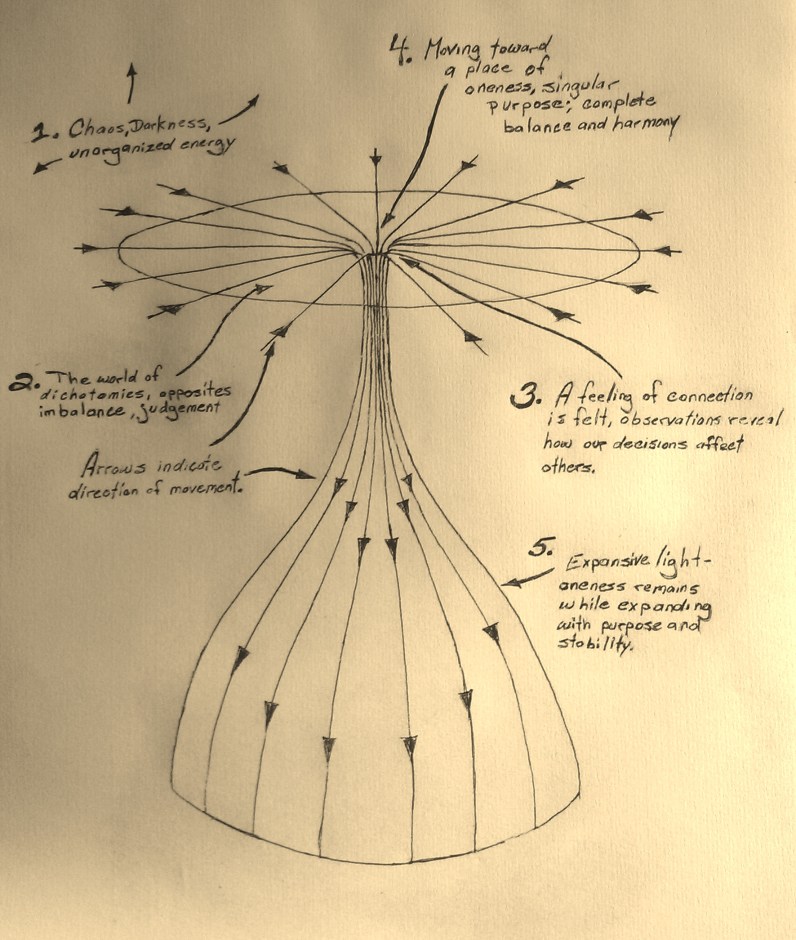 4. Moving toward
a place of
oneness, singular
purpose; complete
balance and harmony
1. Chaos, Darkness,
unorganized energy
2. The world of
dichotomies, opposites
imbalance, judgement
Arrows indicate
direction of movement.
3. A feeling of connection
is felt, observations reveal
how our decisions affect
others.
5. Expansive light-
oneness remains
while expanding
with purpose and
stability.